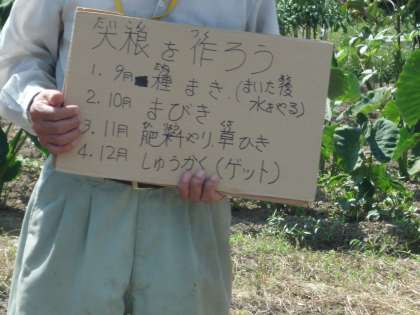 大根を作ろう
1. 9月 種まき.(まいた後
水をやる)
2. 10月 まびき
3. 11月 肥料やり, 草ひき
4. 12月 しゅうかく(ゲット)